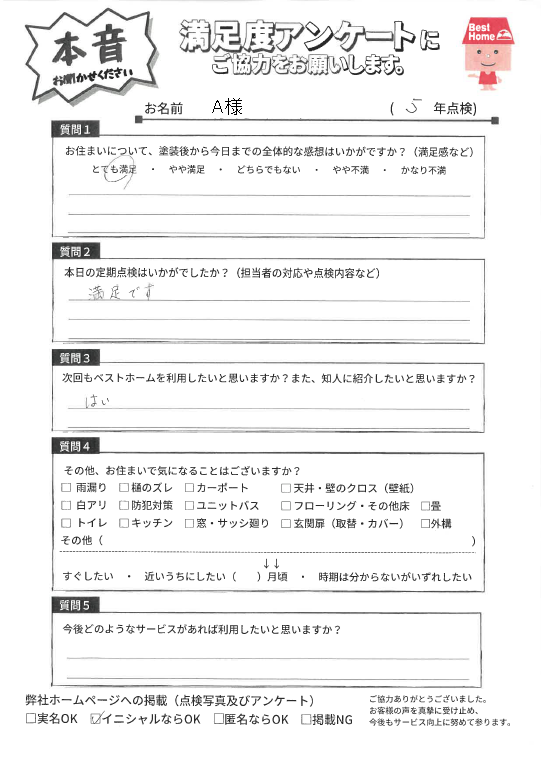 本音
お聞かせください
満足度アンケートに
ご協力をお願いします。
Best
Home
お名前 A様 ( 5 年点検)
質問1
お住まいについて、塗装後から今日までの全体的な感想はいかがですか？（満足感など）
とても満足 ・ やや満足 ・ どちらでもない ・ やや不満 ・ かなり不満
質問2
本日の定期点検はいかがでしたか？（担当者の対応や点検内容など）
満足です
質問3
次回もベストホームを利用したいと思いますか？また、知人に紹介したいと思いますか？
はい
質問4
その他、お住まいで気になることはございますか？
□ 雨漏り □ 樋のズレ □ カーポート □ 天井・壁のクロス（壁紙）
□ 白アリ □ 防犯対策 □ ユニットバス □ フローリング・その他床 □畳
□ トイレ □ キッチン □ 窓・サッシ廻り □ 玄関扉（取替・カバー） □外構
その他（ ）
↓↓
すぐしたい ・ 近いうちにしたい（ ）月頃 ・ 時期は分からないがいずれしたい
質問5
今後どのようなサービスがあれば利用したいと思いますか？
弊社ホームページへの掲載（点検写真及びアンケート）
□実名OK ☑イニシャルならOK □匿名ならOK □掲載NG
ご協力ありがとうございました。
お客様の声を真摯に受け止め、
今後もサービス向上に努めて参ります。